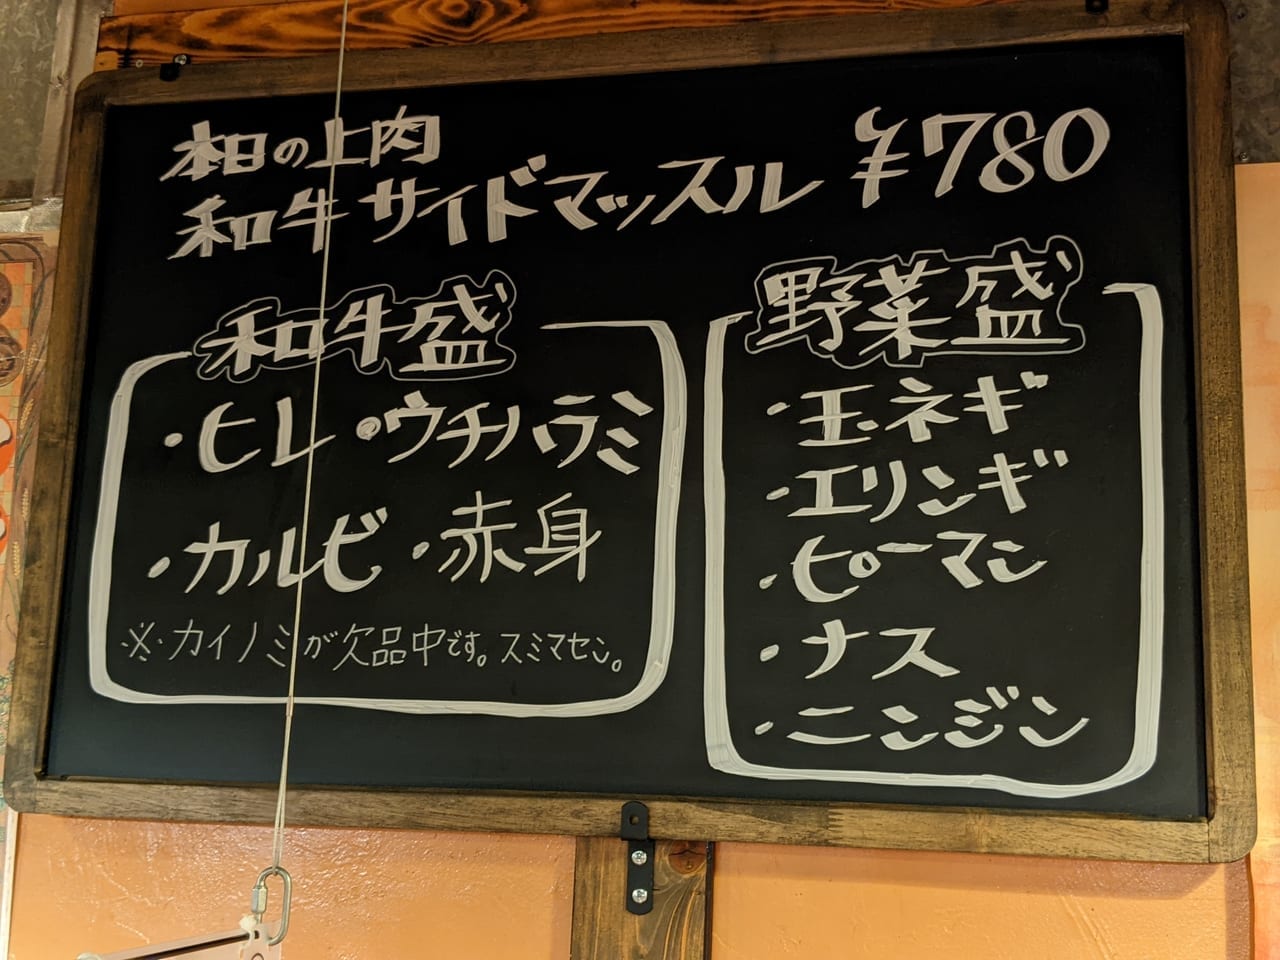 本日の上肉
和牛サイドマッスル ¥780
和牛盛
・ヒレ・ウチハラミ
・カルビ・赤身
※・カイノミが欠品中です。スミマセン。
野菜盛
・玉ネギ
・エリンギ
・ピーマン
・ナス
・ニンジン